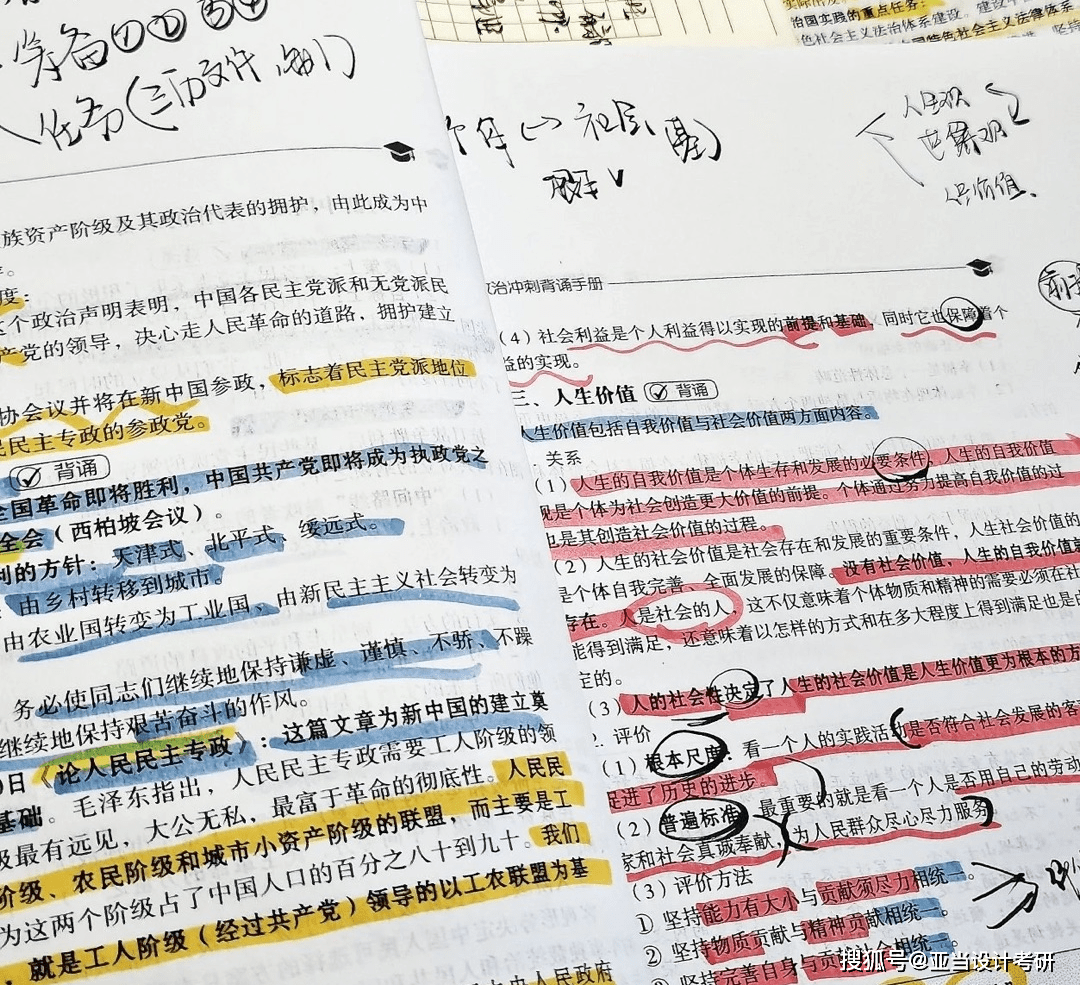 筹备
任务(三历文件,
族资产阶级及其政治代表的拥护，由此成为中
度：
个政治声明表明，中国各民主党派和无党派民
产党的领导，决心走人民革命的道路，拥护建立
协会议并将在新中国参政，标志着民主党派地位
民民主专政的参政党。
背诵
全国革命即将胜利，中国共产党即将成为执政党之
全会（西柏坡会议）。
利的方针：天津式、北平式、绥远式。
由乡村转移到城市。
由农业国转变为工业国、由新民主主义社会转变为
务必使同志们继续地保持谦虚、谨慎、不骄、不躁
继续地保持艰苦奋斗的作风。
日《论人民民主专政》：这篇文章为新中国的建立奠
基础。毛泽东指出，人民民主专政需要工人阶级的领
级最有远见，大公无私，最富于革命的彻底性。人民民
阶级、农民阶级和城市小资产阶级的联盟，而主要是工
为这两个阶级占了中国人口的百分之八十到九十。我们
就是工人阶级（经过共产党）领导的以工农联盟为基
中央人民政府
治国实践的重点任务：
色社会主义法治体系建设。
特色社会主义法律体系
社会
人生观
世界观
价值
政治冲刺背诵手册
（4）社会利益是个人利益得以实现的前提和基础，同时它也保障着个
益的实现。
三、人生价值 背诵
人生价值包括自我价值与社会价值两方面内容。
关系
（1）人生的自我价值是个体生存和发展的必要条件，人生的自我价值
现是个体为社会创造更大价值的前提。个体通过努力提高自我价值的过
也是其创造社会价值的过程。
（2）人生的社会价值是社会存在和发展的重要条件，人生社会价值的
是个体自我完善、全面发展的保障。没有社会价值，人生的自我价值就
存在。人是社会的人，这不仅意味着个体物质和精神的需要必须在社
能得到满足，还意味着以怎样的方式和在多大程度上得到满足也是由
定的。
（3）人的社会性决定了人生的社会价值是人生价值更为根本的方
2. 评价
（1）根本尺度：看一个人的实践活动是否符合社会发展的客
促进了历史的进步
（2）普遍标准：最重要的就是看一个人是否用自己的劳动
家和社会真诚奉献，为人民群众尽心尽力服务
（3）评价方法
① 坚持能力有大小与贡献须尽力相统一。
② 坚持物质贡献与精神贡献相统一。
坚持完善自身与贡献社会相统一。
搜狐号@亚当设计考研